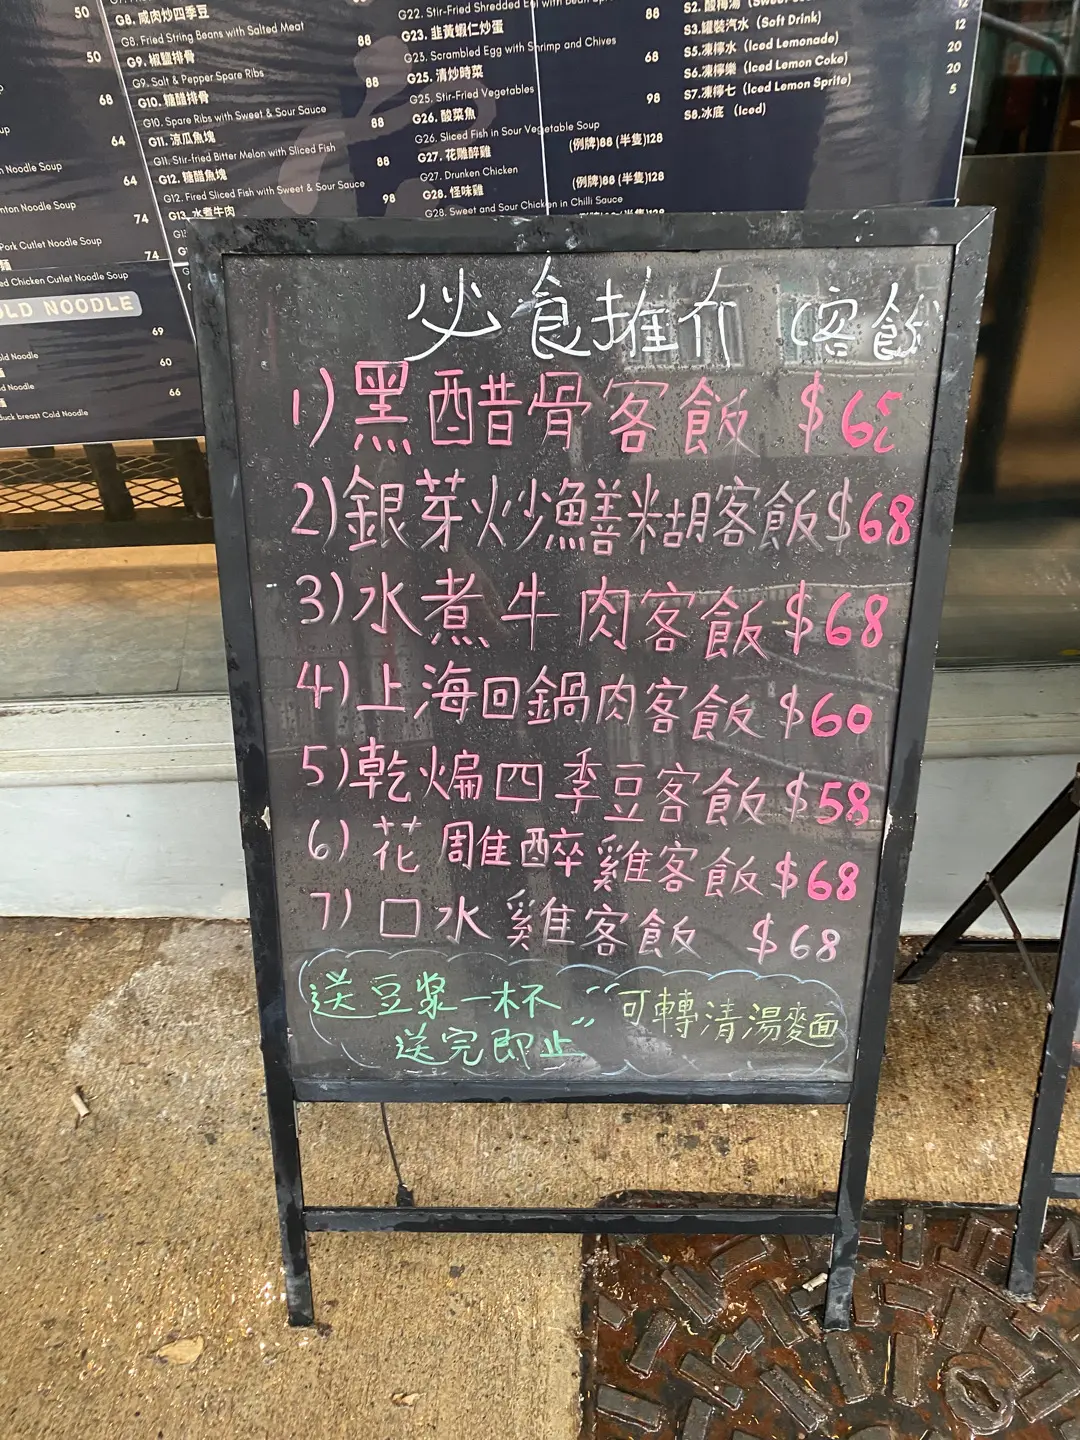 50
G8. 咸肉炒四季豆
G8. Fried String Beans with Salted Meat
50
G9. 椒鹽排骨
88
G9. Salt & Pepper Spare Ribs
68
G10. 糖醋排骨
88
G10. Spare Ribs with Sweet & Sour Sauce
64
G11. 涼瓜魚塊
88
G11. Stir-fried Bitter Melon with Sliced Fish
64
G12. 糖醋魚塊
88
G12. Fired Sliced Fish with Sweet & Sour Sauce
98
G13. 水煮牛肉
Noodle Soup
Noodle Soup
74
Pork Cutlet Noodle Soup
74
Chicken Cutlet Noodle Soup
OLD NOODLE
69
Noodle
60
Noodle
66
duck breast Cold Noodle
G22. Stir-Fried Shredded
G23. 韭黃蝦仁炒蛋
88
G23. Scrambled Egg with Shrimp and Chives
G25. 清炒時菜
68
G25. Stir-Fried Vegetables
G26. 酸菜魚
98
G26. Sliced Fish in Sour Vegetable Soup
G27. 花雕醉雞
(例牌)88 (半隻)128
G27. Drunken Chicken
G28. 怪味雞
(例牌)88 (半隻)128
G28. Sweet and Sour Chicken in Chilli Sauce
S2. 酸梅湯
12
S3.罐裝汽水 (Soft Drink)
12
S5.凍檸水 (Iced Lemonade)
20
S6.凍檸樂 (Iced Lemon Coke)
20
S7.凍檸七 (Iced Lemon Sprite)
5
S8.冰底 (Iced)
必食推介 (客飯
1) 黑醋骨客飯 $65
2) 銀芽炒鱔糊客飯 $68
3) 水煮牛肉客飯 $68
4) 上海回鍋肉客飯 $60
5) 乾煸四季豆客飯 $58
6) 花雕醉雞客飯 $68
7) 口水雞客飯 $68
送豆漿一杯
"送完即止"
可轉清湯麵